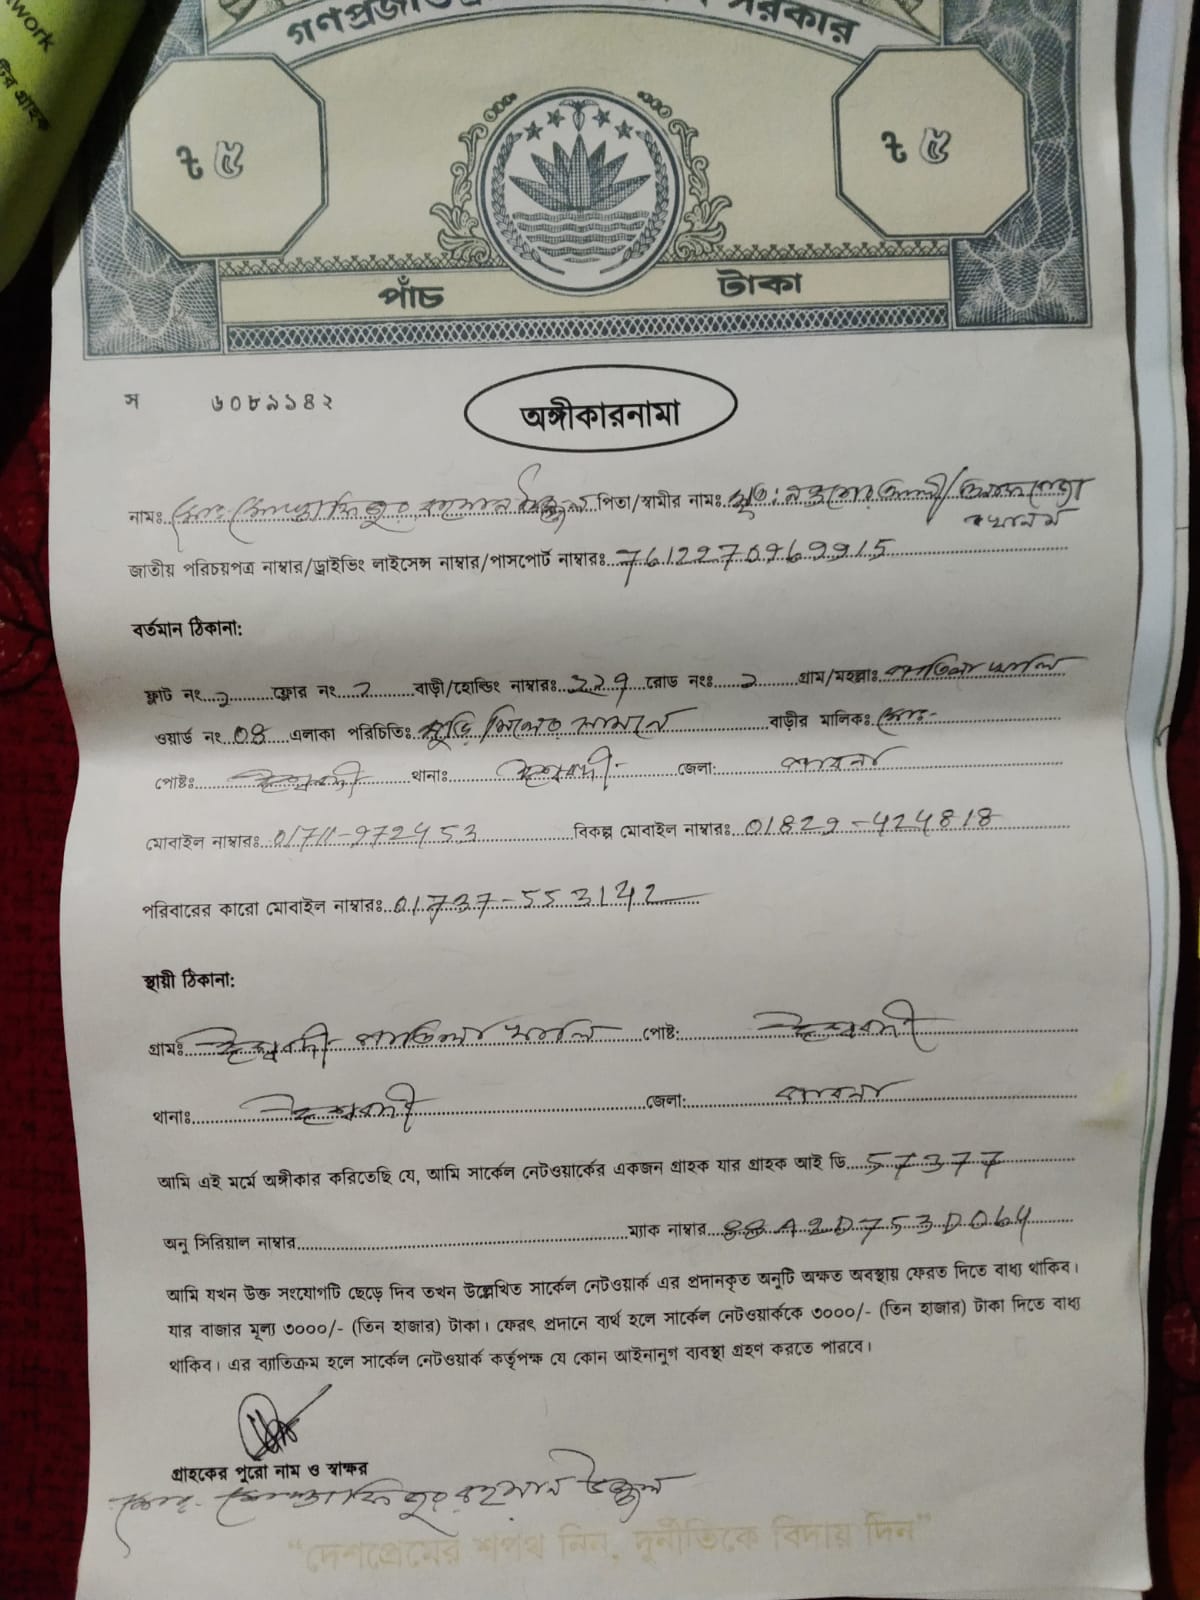 work
টির গ্রাহক
সরকার
৳ ৫
৳ ৫
পাঁচ টাকা
স ৬০৮৯১৪২
অঙ্গীকারনামা
নামঃ মোঃ মোস্তাফিজুর রহমান উজ্জ্বল পিতা/স্বামীর নামঃ মৃত:
জাতীয় পরিচয়পত্র নাম্বার/ড্রাইভিং লাইসেন্স নাম্বার/পাসপোর্ট নাম্বারঃ
বর্তমান ঠিকানা:
ফ্লাট নং ফ্লোর নং বাড়ী/হোল্ডিং নাম্বারঃ রোড নংঃ গ্রাম/মহল্লাঃ
ওয়ার্ড নং 04 এলাকা পরিচিতিঃ মুড়ি মিলের সামনে বাড়ীর মালিকঃ মোঃ-
পোষ্টঃ ঈশ্বরদী থানাঃ ঈশ্বরদী জেলা: পাবনা
মোবাইল নাম্বারঃ 01711-972453 বিকল্প মোবাইল নাম্বারঃ 01829-424818
পরিবারের কারো মোবাইল নাম্বারঃ 01737-553142
স্থায়ী ঠিকানা:
গ্রামঃ ঈশ্বরদী পোষ্ট: ঈশ্বরদী
থানাঃ ঈশ্বরদী জেলা: পাবনা
আমি এই মর্মে অঙ্গীকার করিতেছি যে, আমি সার্কেল নেটওয়ার্কের একজন গ্রাহক যার গ্রাহক আই ডি 57377
অনু সিরিয়াল নাম্বার ম্যাক নাম্বার
আমি যখন উক্ত সংযোগটি ছেড়ে দিব তখন উল্লেখিত সার্কেল নেটওয়ার্ক এর প্রদানকৃত অনুটি অক্ষত অবস্থায় ফেরত দিতে বাধ্য থাকিব।
যার বাজার মূল্য ৩০০০/- (তিন হাজার) টাকা। ফেরৎ প্রদানে ব্যর্থ হলে সার্কেল নেটওয়ার্ককে ৩০০০/- (তিন হাজার) টাকা দিতে বাধ্য
থাকিব। এর ব্যাতিক্রম হলে সার্কেল নেটওয়ার্ক কর্তৃপক্ষ যে কোন আইনানুগ ব্যবস্থা গ্রহণ করতে পারবে।
গ্রাহকের পুরো নাম ও স্বাক্ষর
মোঃ- মোস্তাফিজুর রহমান উজ্জ্বল
"দেশপ্রেমের শপথ নিন, দুর্নীতিকে বিদায় দিন"